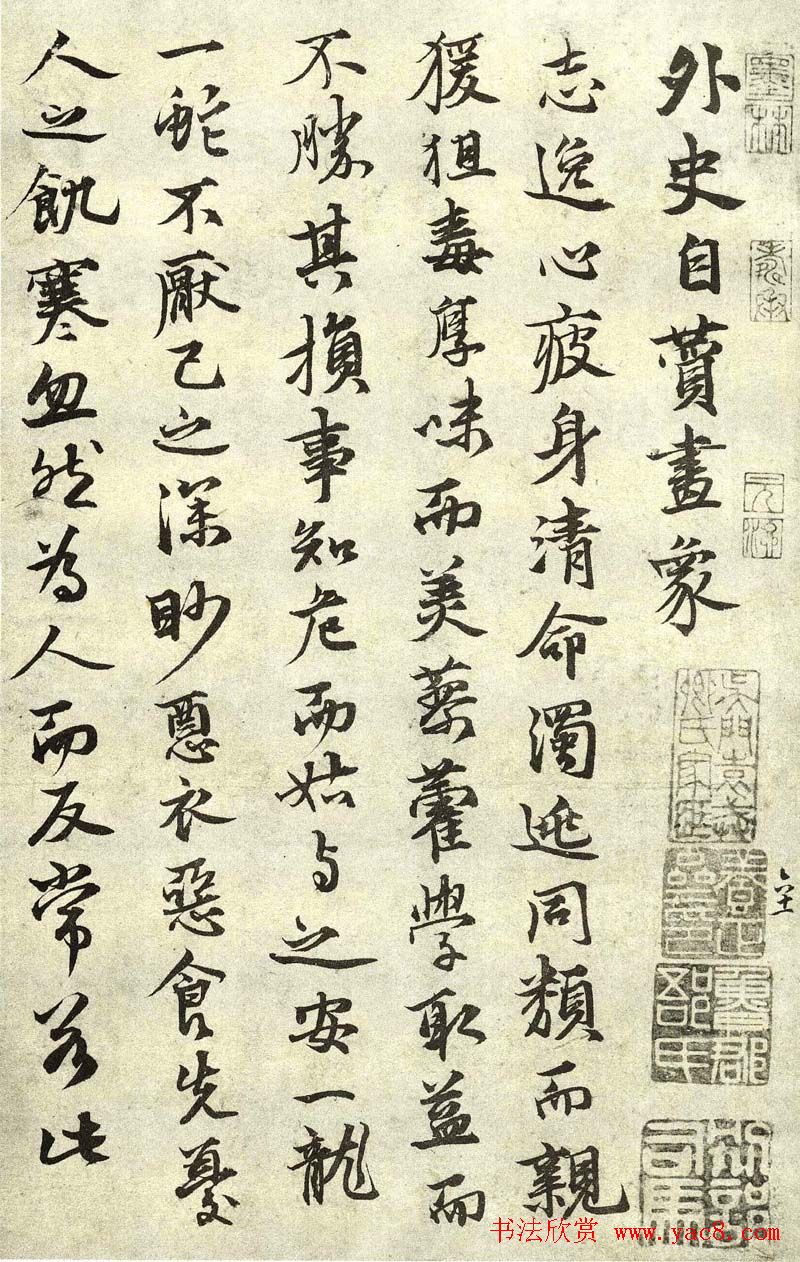 墨林
外史自賛畫象
志逸心疲身清命濁逃同類而親
猨狙毒厚味而美藜藿學取益而
不勝其損事知危而姑与之安一龍
一蛇不厭己之深眇惡衣惡食先憂
人之飢寒忽然為人而反常若此
书法欣赏 www.yac8.com